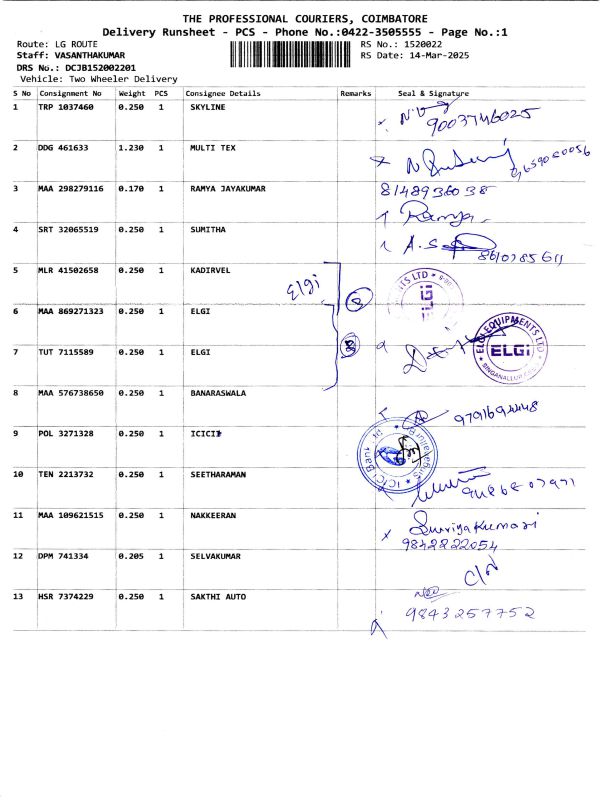 THE PROFESSIONAL COURIERS, COIMBATORE
Delivery Runsheet - PCS - Phone No.:0422-3505555 - Page No.:1
Route: LG ROUTE RS No.: 1520022
Staff: VASANTHAKUMAR RS Date: 14-Mar-2025
DRS No.: DCJB152002201
Vehicle: Two Wheeler Delivery
S No Consignment No Weight PCS Consignee Details Remarks Seal & Signature
1 TRP 1037460 0.250 1 SKYLINE
9003746025
2 DDG 461633 1.230 1 MULTI TEX
3 MAA 298279116 0.170 1 RAMYA JAYAKUMAR 8148936038
Ramya
4 SRT 32065519 0.250 1 SUMITHA A.S
5 MLR 41502658 0.250 1 KADIRVEL
Elgi
6 MAA 869271323 0.250 1 ELGI
7 TUT 7115589 0.250 1 ELGI
ELGI EQUIPMENTS LTD
ELGi
8 MAA 576738650 0.250 1 BANARASWALA
9791694448
9 POL 3271328 0.250 1 ICICI
ICICI Bank
10 TEN 2213732 0.250 1 SEETHARAMAN
11 MAA 109621515 0.250 1 NAKKEERAN
Suriyakumari
9842222054
12 DPM 741334 0.205 1 SELVAKUMAR
13 HSR 7374229 0.250 1 SAKTHI AUTO
9843257752